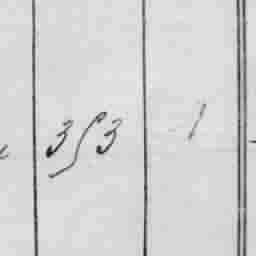 353 1